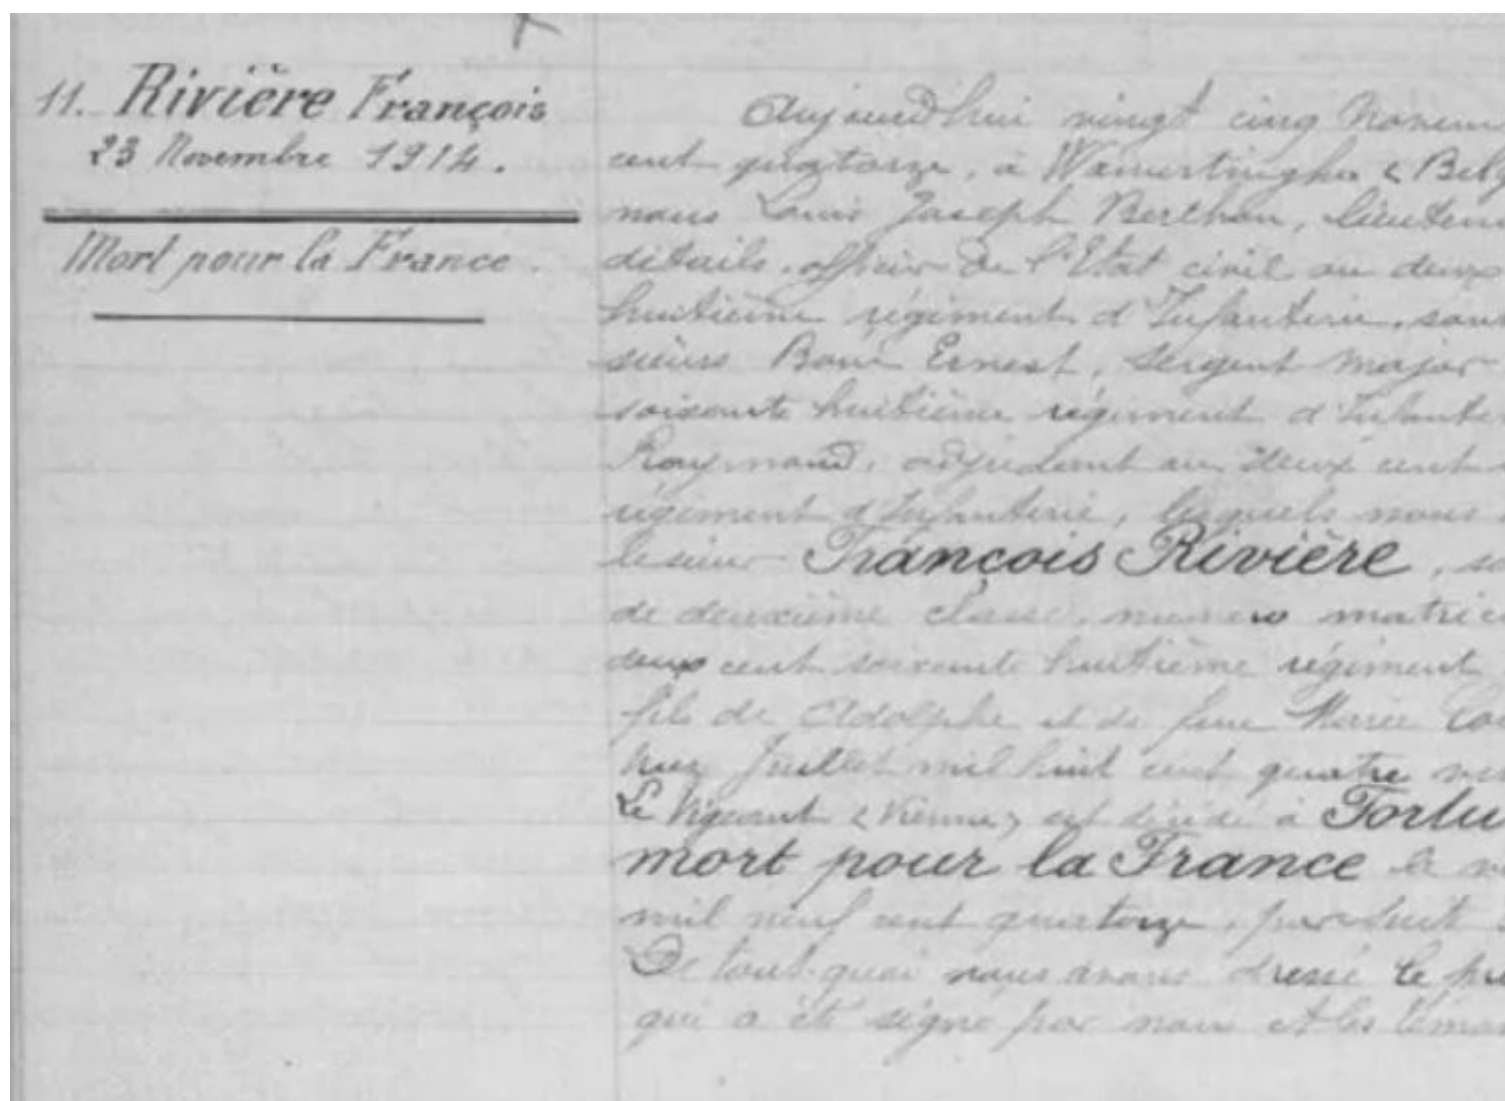 11. Rivière François
23 Novembre 1914.
Mort pour la France.
Aujourd'hui vingt cinq Novem
cent quatorze, à Wamertinghe (Belg
nous Louis Joseph Berthon, lieuten
détails, officier de l'Etat civil au deux
huitième régiment d'Infanterie, sou
sieurs Ernest, Sergent Major
soixante huitième régiment d'Infante
Raymond, adjudant au deux cent
régiment d'Infanterie, lesquels nous
le sieur François Rivière, so
de deuxième classe, numéro matric
deux cent soixante huitième régiment
fils de Adolphe et de feue Marie
Juillet mil huit cent quatre vi
Le Vigeant (Vienne) est décédé à Fortu
mort pour la France le v
mil neuf cent quatorze, par suit
De tout quoi nous avons dressé le pr
qui a été signé par nous et les témoi